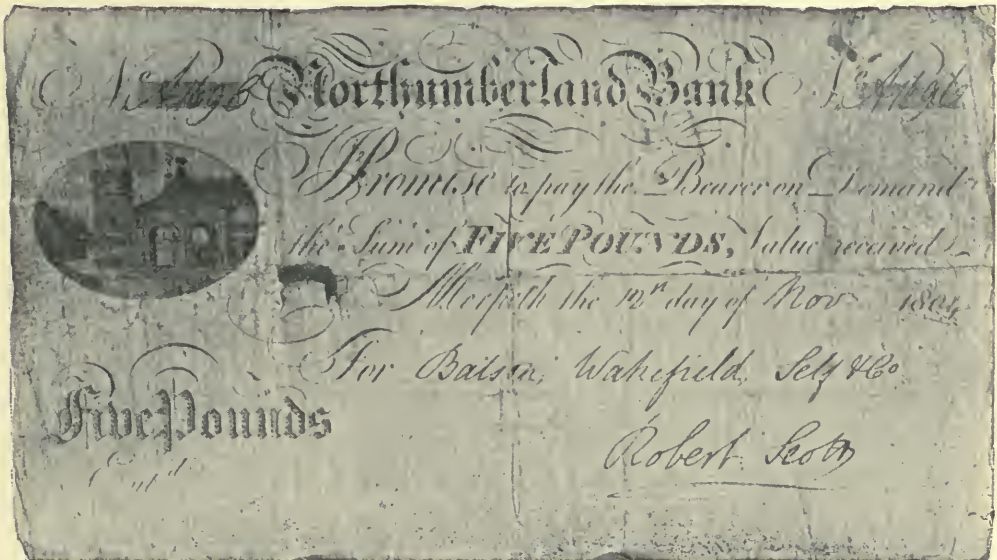 Northumberland Bank
I Promise to pay the Bearer on Demand
the Sum of FIVE POUNDS, Value received
Morpeth the 12th day of Nov 1804
For Batson, Wakefield, Self & Co
Five Pounds
Robert Scott
Ent.d